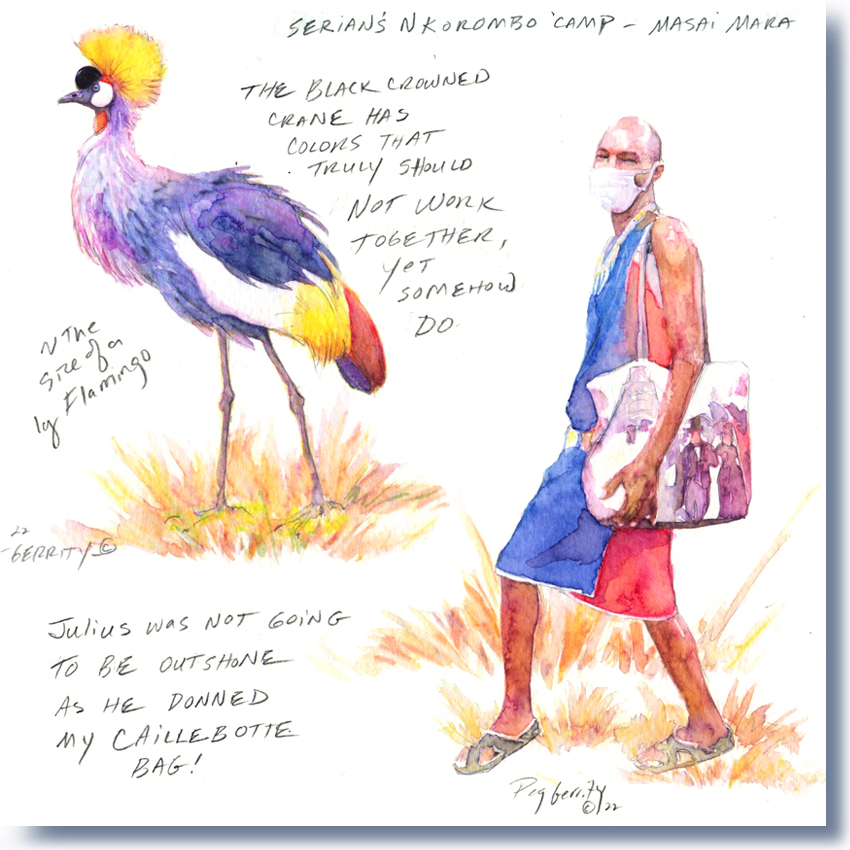 SERIAN'S NKOROMBO CAMP - MASAI MARA
THE BLACK CROWNED
CRANE HAS
COLORS THAT
TRULY SHOULD
NOT WORK
TOGETHER,
YET
SOMEHOW
DO
~ THE
SIZE OF A
lg FLAMINGO
22
GERRITY ©
JULIUS WAS NOT GOING
TO BE OUTSHONE
AS HE DONNED
MY CAILLEBOTTE
BAG!
Peg Gerrity
© 22